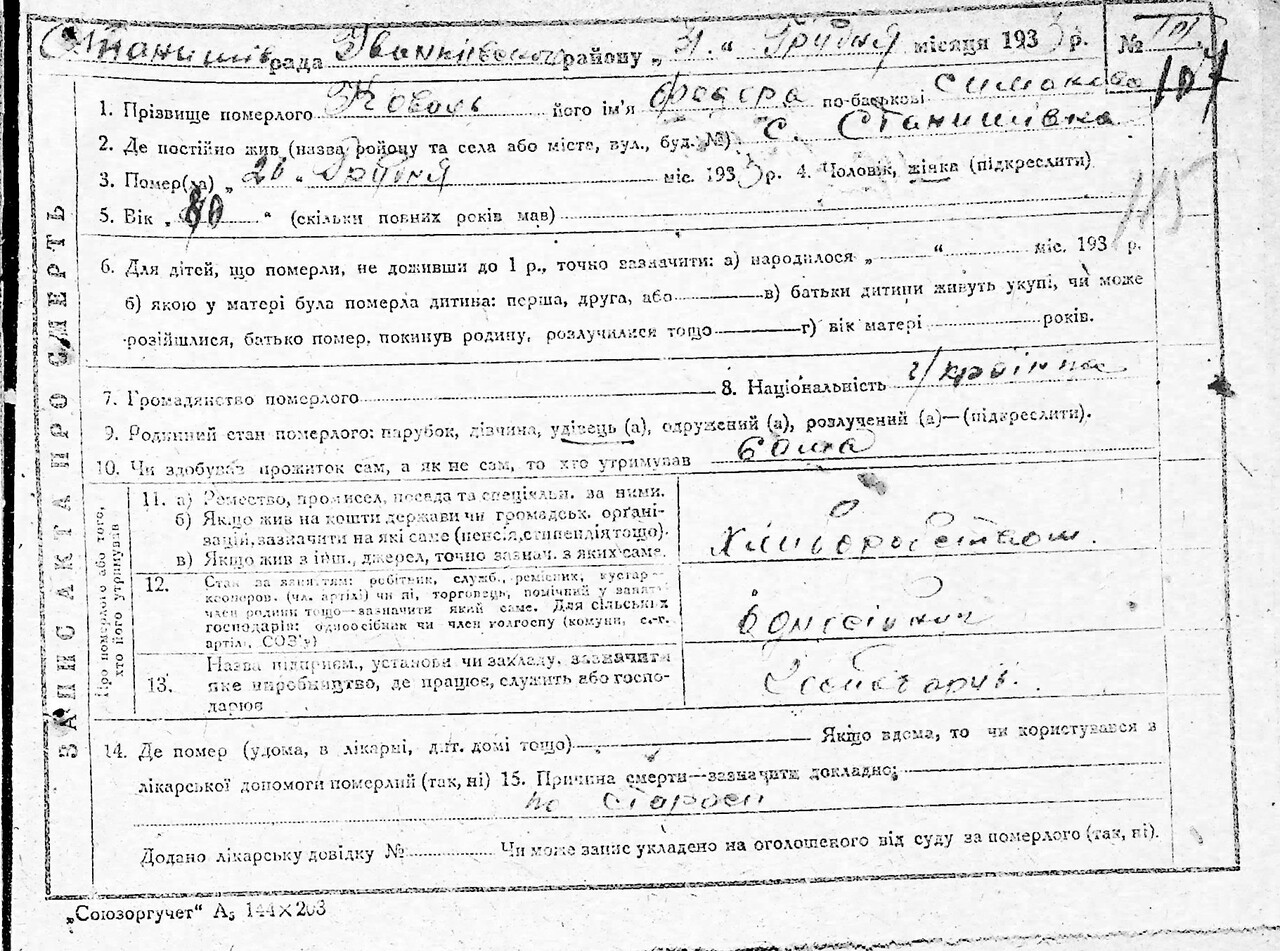 Станишів рада Іванківського району „31“ Грудня місяця 1933 р. № 101
107
1. Прізвище померлого Коваль його ім'я Федора по-баськові Симонова
2. Де постійно жив (назва району та села або місте, вул., буд. №) с. Станишівка
3. Помер(ла) „26. Грудня міс. 1933 р. 4. Чоловік, жінка (підкреслити)
5. Вік „80“ (скільки повних років мав)
115
6. Для дітей, що померли, не доживши до 1 р., точно зазначити: а) народилося „ “ міс. 193 р.
б) якою у матері була померла дитина: перша, друга, або в) батьки дитини живуть укупі, чи може
розійшлися, батько помер, покинув родину, розлучилися тощо г) вік матері років.
7. Громадянство померлого 8. Національність Українка
9. Родинний стан померлого: парубок, дівчина, удівець (а), одружений (а), розлучений (а)—(підкреслити).
10. Чи здобував прожиток сам, а як не сам, то хто утримував сама
ЗАПИС АКТА ПРО СМЕРТЬ
Про померлого або того, хто його утримував
11. а) Ремество, промисел, посада та спеціяльн. за ними.
б) Якщо жив на кошти держави чи громадськ. орґані-
зацій, зазначити на які саме (пенсія, стипендія тощо).
в) Якщо жив з інш. джерел, точно зазнач. з яких саме.
Хліборобством.
12. Стан за заняттям: робітник, служб., ремісник, кустар—
кооперов. (чл. артілі) чи ні, торговець, помічний у занятт.
член родини тощо—зазначити який саме. Для сільських
господарів: одноосібник чи член колгоспу (комуни, с.-г.
артіл. СОЗ'у)
13. Назва підприєм., установи чи закладу, зазначити
яке виробництво, де працює, служить або госпо-
дарює
14. Де помер (удома, в лікарні, дит. домі тощо) Якщо вдома, то чи користувався з
лікарської допомоги померлий (так, ні) 15. Причина смерти—зазначити докладно:
по старосі
Додано лікарську довідку № Чи може запис укладено на оголошеного від суду за померлого (так, ні).
„Союзоргучет“ А₅ 144×203